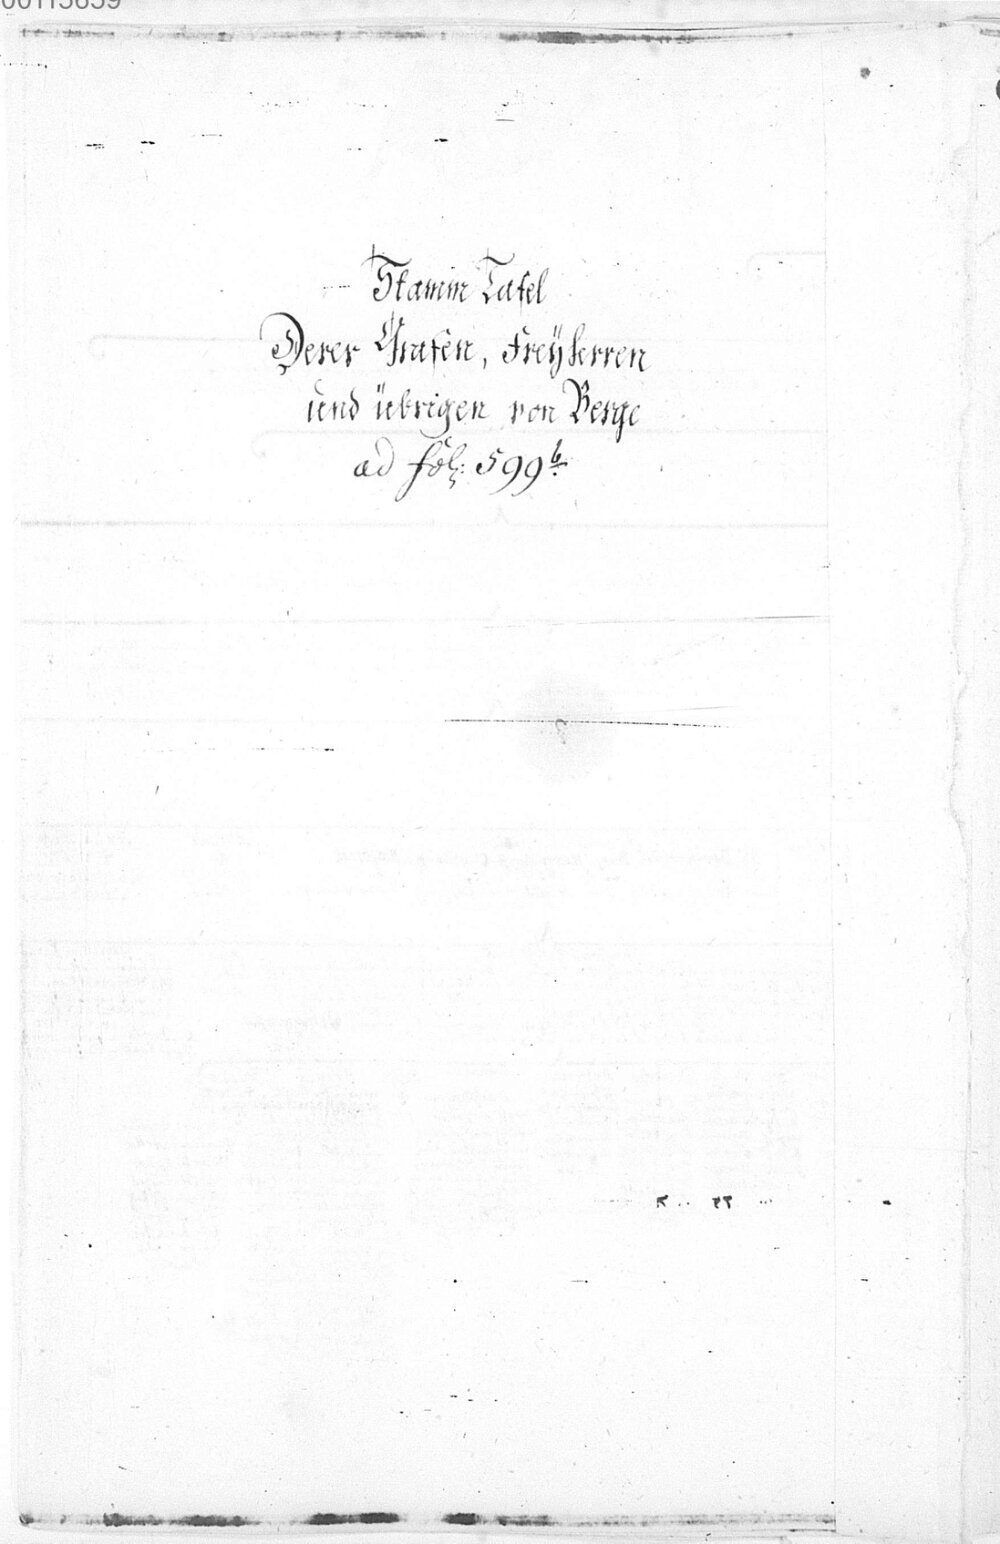 00113659
Stamm Tafel
Derer Grafen, Freÿherren
und übrigen von Berge
ad fol: 599b